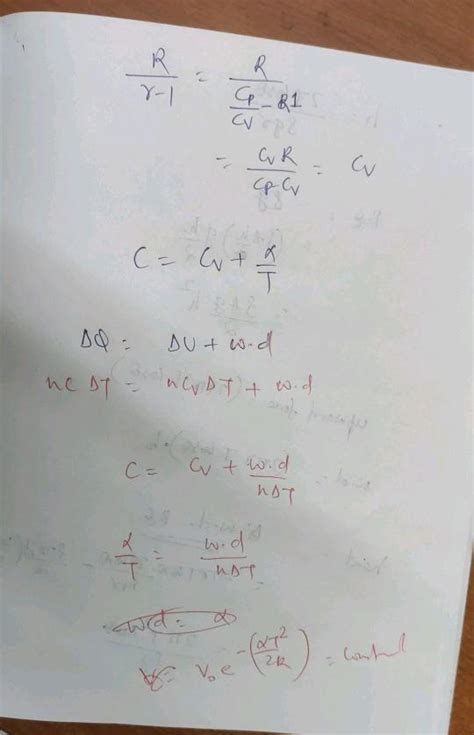 R/(γ-1) = R/(Cp/Cv - 1)
= CvR/(Cp-Cv) = Cv
C = Cv + α/T
ΔQ = ΔU + w.d
nCΔT = nCvΔT + w.d
C = Cv + w.d/nΔT
α/T = w.d/nΔT
wd = α
V₀ e^-(αT²/2R) =